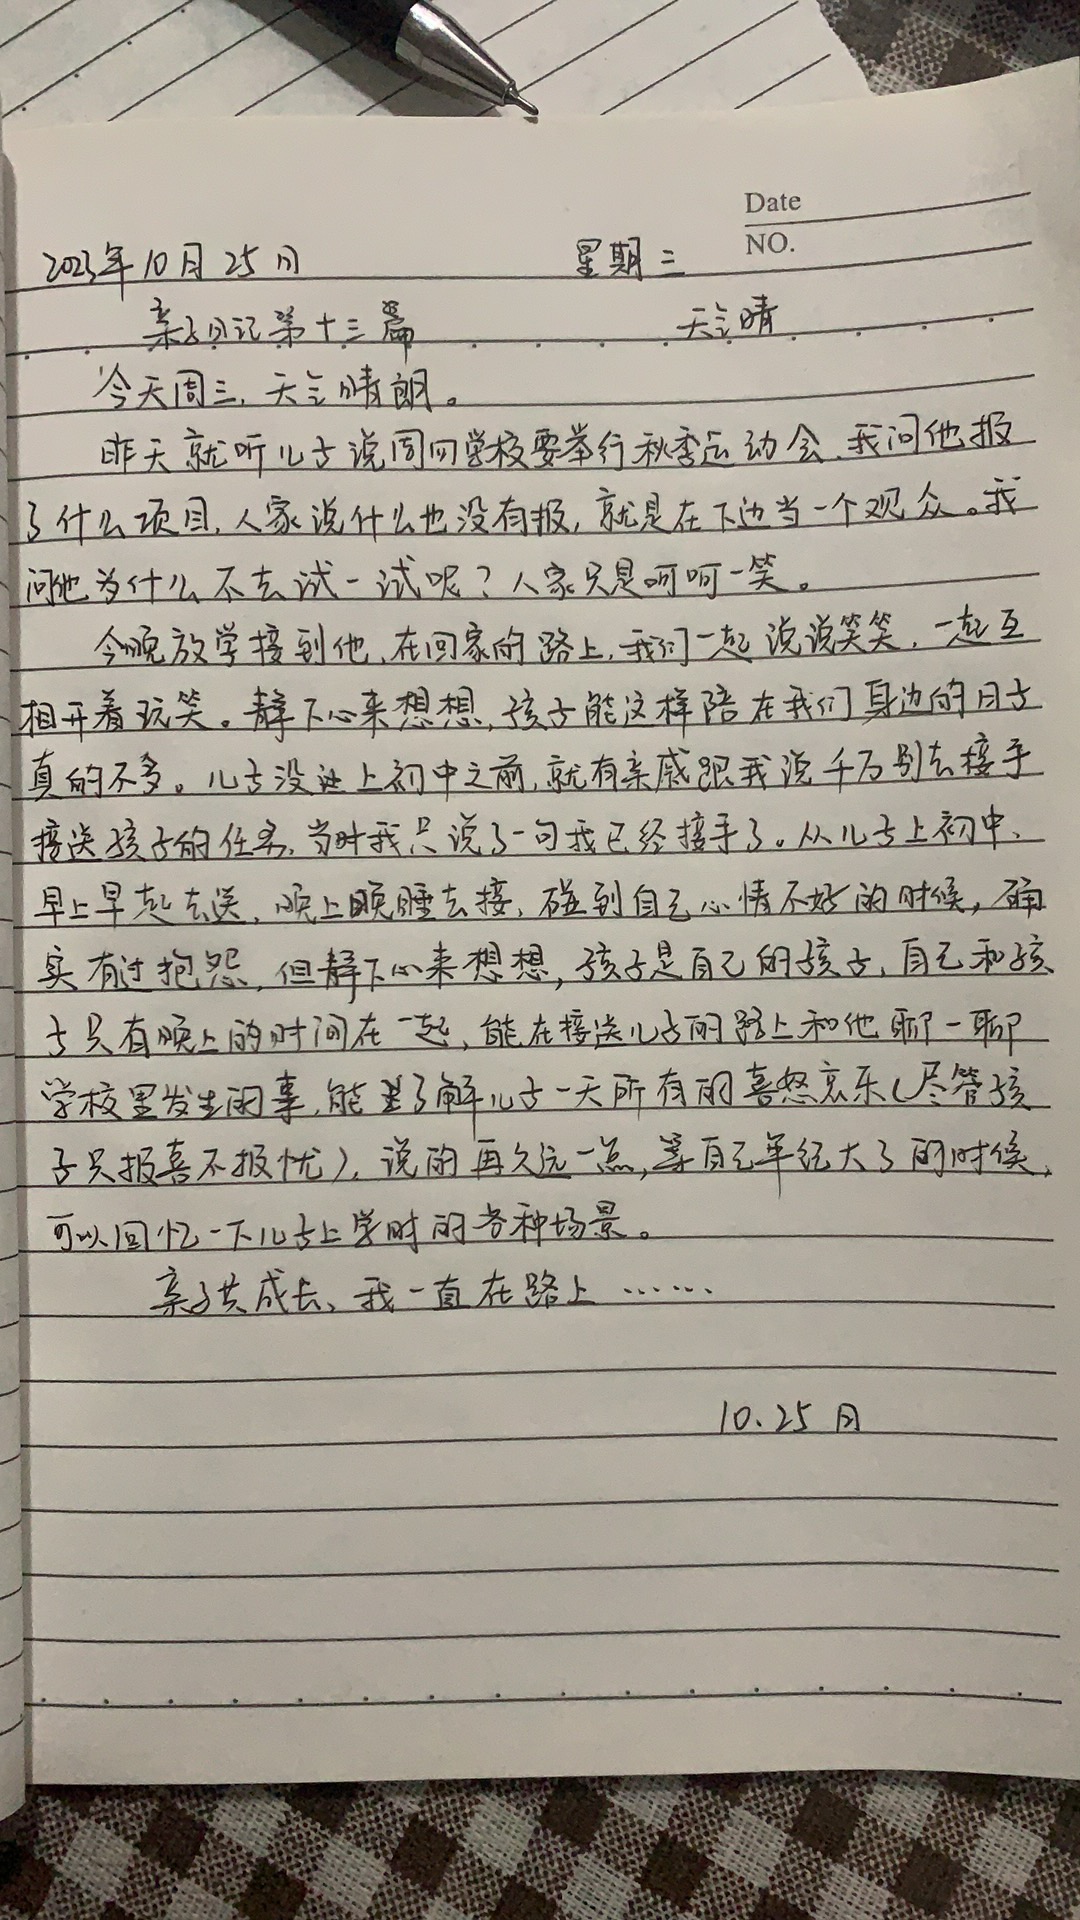 Date
NO.
2023年10月25日 星期三
亲子日记第十三篇 天气晴
今天周三,天气晴朗。
昨天就听儿子说周四学校要举行秋季运动会,我问他报
了什么项目,人家说什么也没有报,就是在下边当一个观众。我
问他为什么不去试一试呢?人家只是呵呵一笑。
今晚放学接到他,在回家的路上,我们一起说说笑笑,一起互
相开着玩笑。静下心来想想,孩子能这样陪在我们身边的日子
真的不多。儿子没上初中之前,就有亲戚跟我说千万别去接手
接送孩子的任务,当时我只说了一句我已经接手了。从儿子上初中、
早上早起去送,晚上晚睡去接,碰到自己心情不好的时候,确
实有过抱怨,但静下心来想想,孩子是自己的孩子,自己和孩
子只有晚上的时间在一起,能在接送儿子的路上和他聊一聊
学校里发生的事,能了解儿子一天所有的喜怒哀乐(尽管孩
子只报喜不报忧),说的再久远一点,等自己年纪大了的时候,
可以回忆一下儿子上学时的各种场景。
亲子共成长、我一直在路上……
10.25日